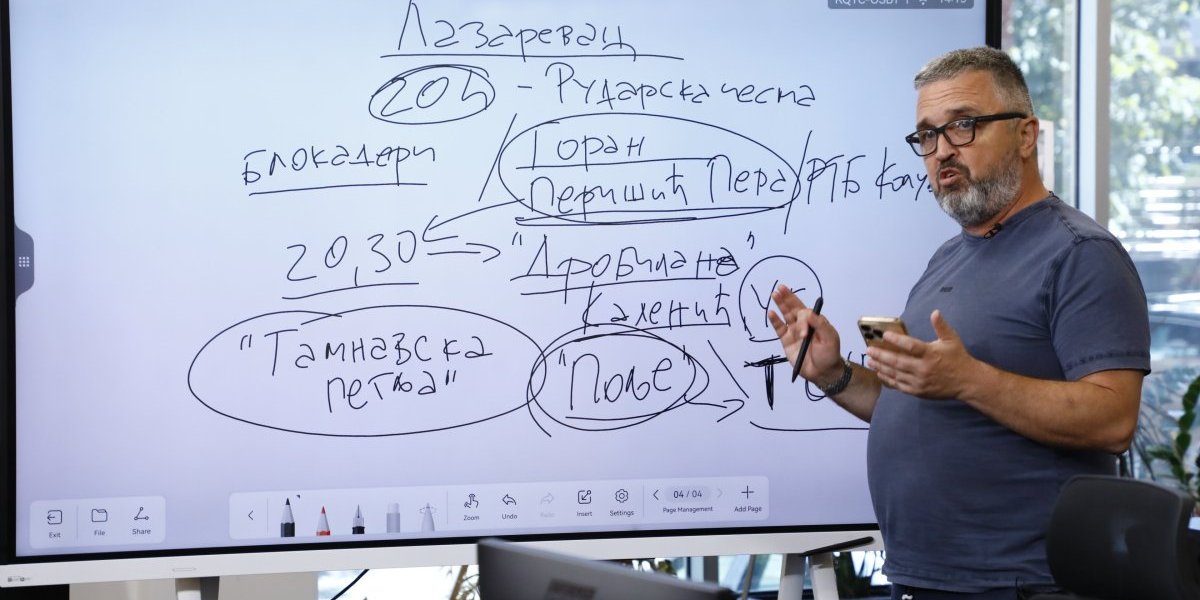 Лазаревац
20h - Рударска чесма
Блокадери / Горан / РТБ Колу
Перишић Пера
20,30 "Дробилана"
Каленић
"Тамнавска "Поље"
петља"
Exit File Share Zoom Undo Redo Insert Settings 04/04 Page Management Add Page